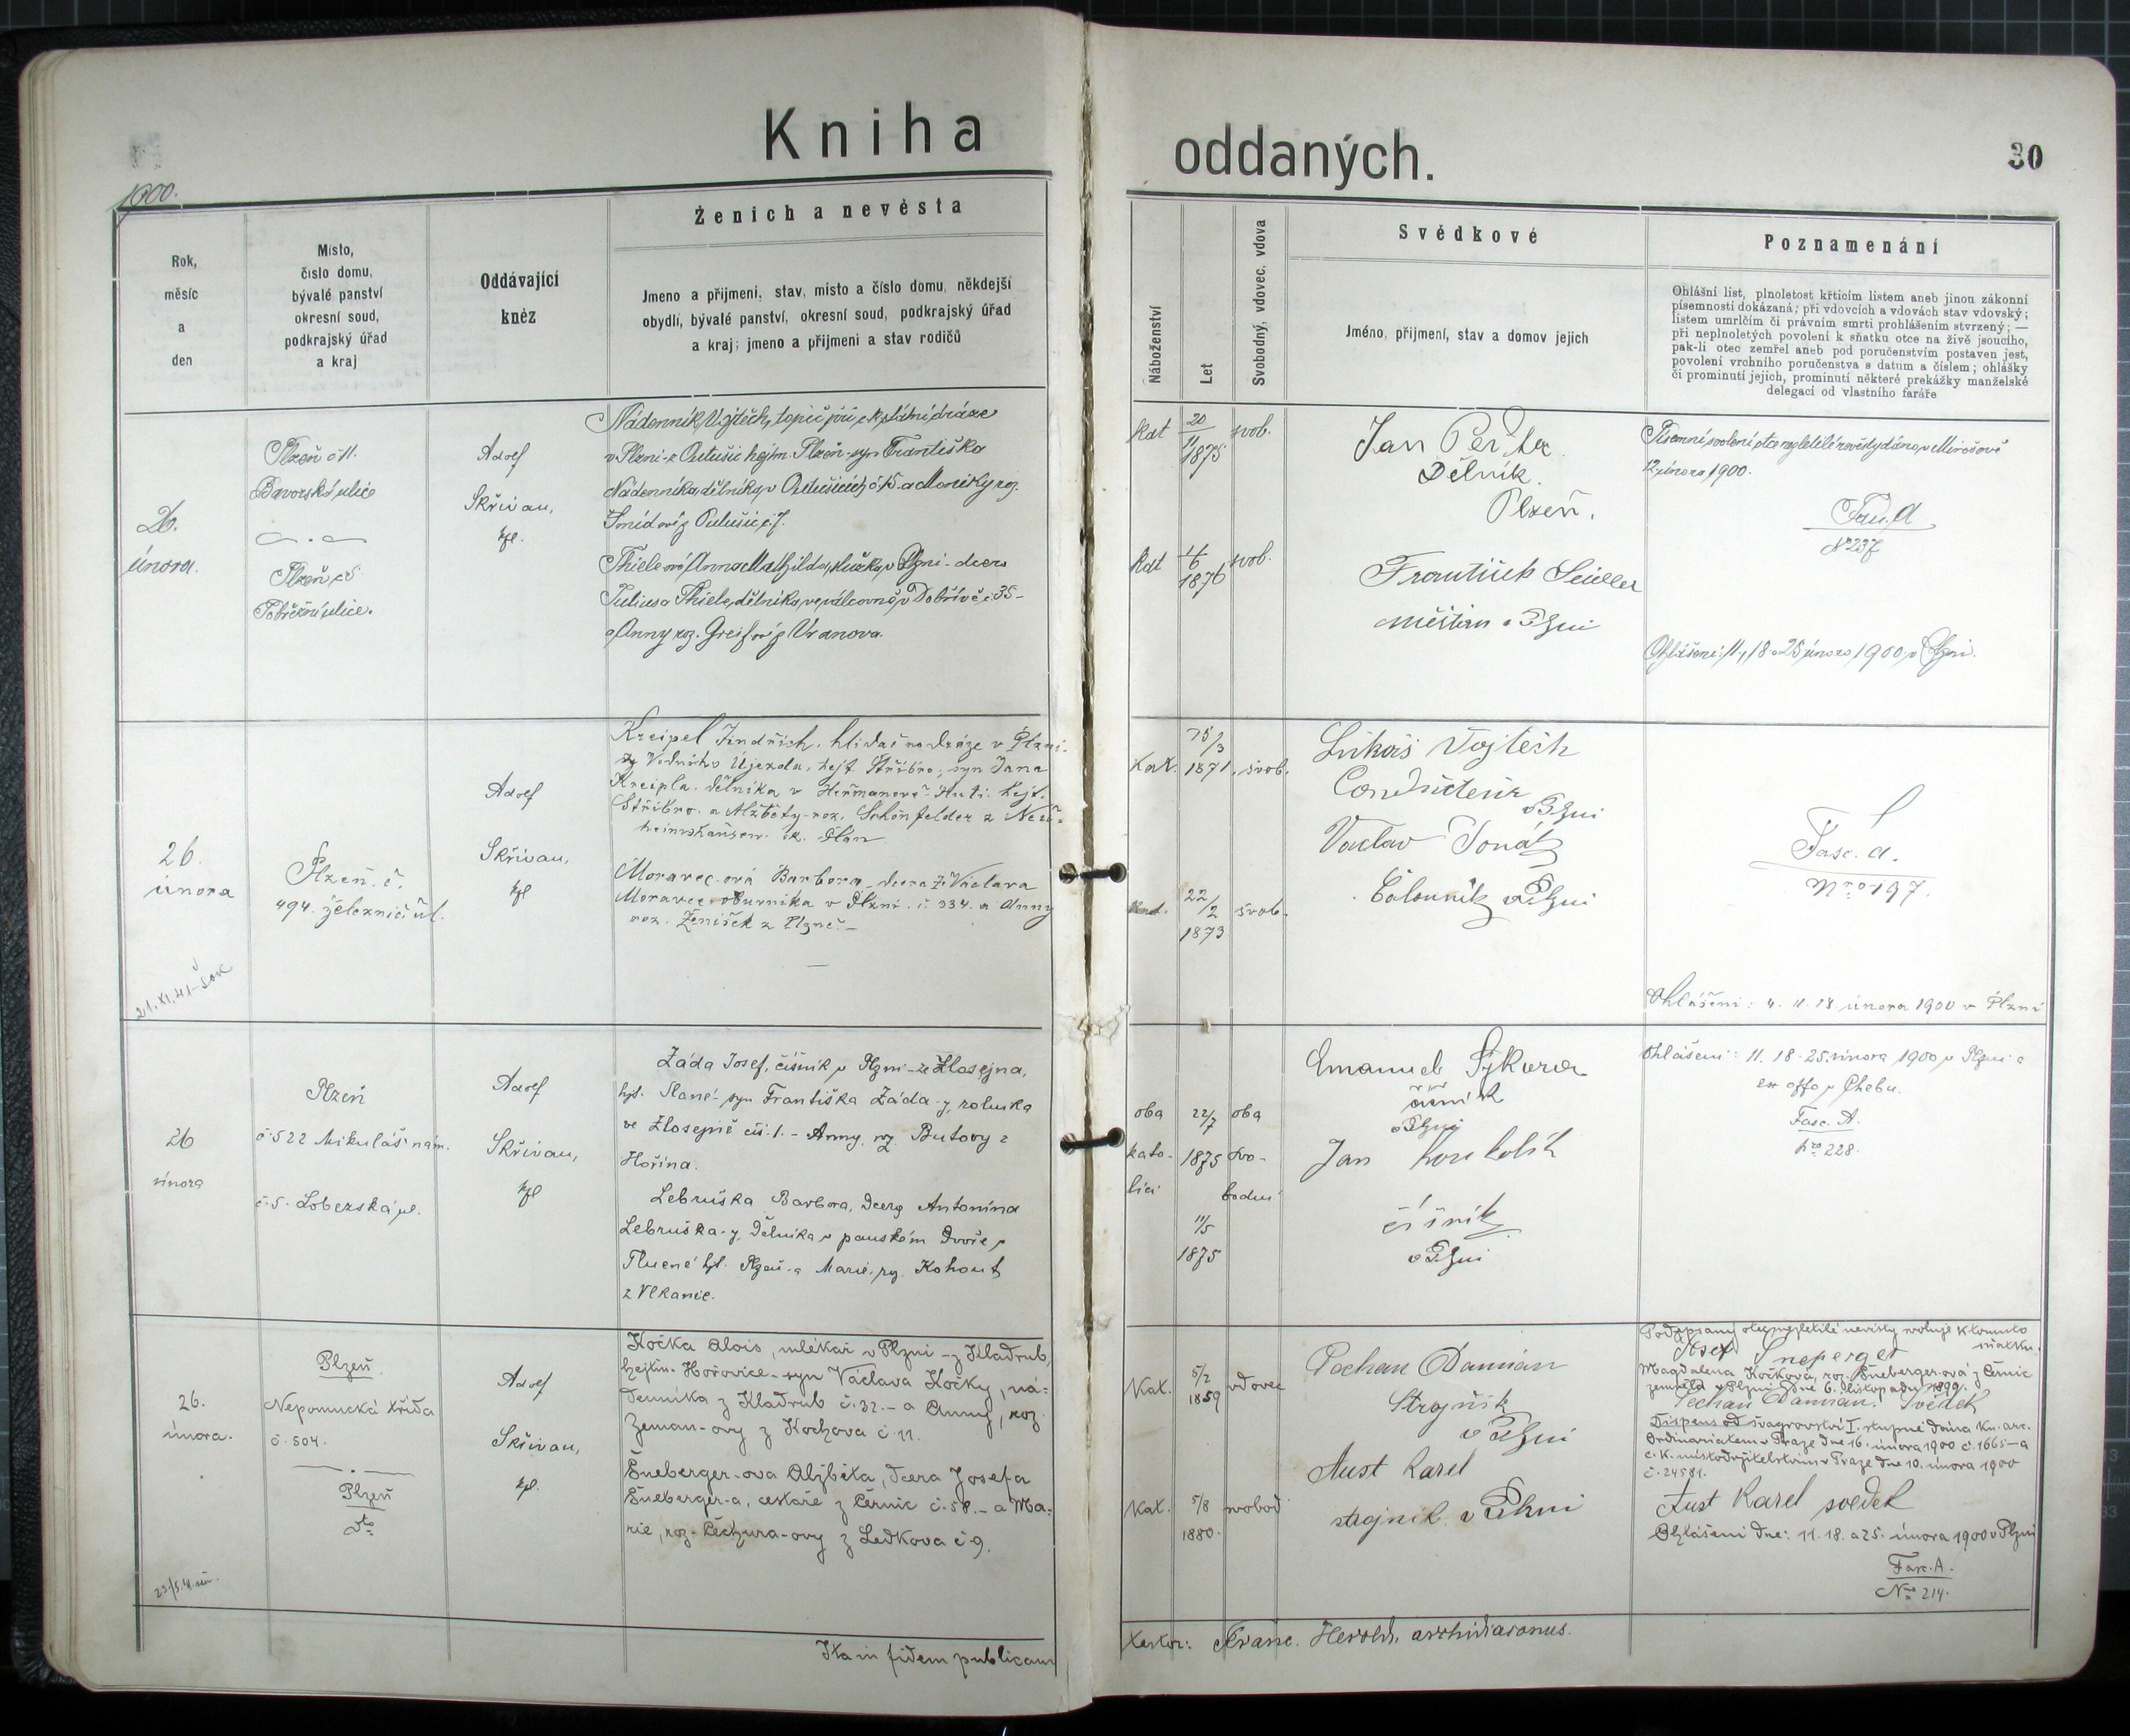 Kniha
oddaných.
30
1900.
Rok,
měsíc
a
den
Místo,
číslo domu,
bývalé panství
okresní soud,
podkrajský úřad
a kraj
Oddávající
kněz
Ženich a nevěsta
Jmeno a přijmeni, stav, misto a číslo domu, někdejší
obydlí, bývalé panství, okresní soud, podkrajský úřad
a kraj; jmeno a přijmeni a stav rodičů
Náboženství
Let
Svobodný, vdovec, vdova
Svědkové
Jméno, přijmení, stav a domov jejich
Poznamenání
Ohlášní list, plnoletost křticím listem aneb jinou zákonní
písemností dokázaná; při vdovcích a vdovách stav vdovský;
listem umrlčím či právním smrti prohlášením stvrzený; —
při neplnoletých povolení k sňatku otce na živě jsoucího,
pak-li otec zemřel aneb pod poručenstvím postaven jest,
povolení vrchního poručenstva s datum a číslem; ohlášky
či prominutí jejich, prominutí některé prekážky manželské
delegací od vlastního faráře
26.
února.
Plzeň č 11.
Bavorská ulice
Plzeň
ulice.
Adolf
Skřivan,
kpl.
Nádenník Vojtěch, topič při c. k. státní dráze
v Plzni - z hejtm. Plzeň - syn Františka
Nádenníka, dělníka, v č 15 - a Moniky roz.
č. 7.
Thiele ová Anna Mathilda, služka v Plzni - dcera
Juliusa Thiele, dělníka ve válcovně v Dobřívě č 35 -
a Anny roz. Greif ové z Vranova.
kat
20
11
1875
svob.
kat
4
6
1876
svob.
Jan
Dělník.
Plzeň.
František
měšťan v Plzni
Písemní svolení otce nezletilé nevěsty dáno v Mirošově
12 února 1900.
Fasc. A
No 237
Ohlášení: 11, 18 a 25 února 1900 v Plzni.
26.
února
21. XI. 41
Plzeň. č.
494. železniční ul.
Adolf
Skřivan,
kpl
Kreipel Jindřich, hlídač na dráze v Plzni.
z Vodního Újezda, hejt. Stříbro, syn Jana
Kreipla, dělníka v Heřmanově Huti. hejt.
Stříbro. a Alžběty roz. Schönfelder z
Moravec-ová Barbora dcera Václava
Moravec, obuvníka v Plzni č. 334. a Anny
roz. Ženíšek z Plzně. -
kat.
15/3
1871.
svob.
kat.
22/2
1873
svob.
Lukáš Vojtěch
Conducteur
v Plzni
Vaclav Tonář
Čalouník v Plzni
Fasc. A.
Nro 197.
Ohlášení: 4. 11. 18. února 1900 v Plzni
26
února
Plzeň
č. 522 Mikuláš. nám.
č. 5. Lobezská ul.
Adolf
Skřivan,
kpl
Záda Josef, číšník v Plzni - ze Zlosejna,
hjt. Slané - syn Františka Záda-y, rolníka
ve Zlosejně čís. 1. - Anny, roz. Butovy z
Hořína.
Lebruška Barbora, dcera Antonína
Lebruška-y, dělníka v panském dvoře v
Tlucné hjt. Plzeň - a Marie, roz. Kohout
z Vlkanic.
oba
kato-
líci
22/7
1875
11/5
1875
oba
svo-
bodni
Emanuel Sýkora
číšník
v Plzni
Jan
číšník
v Plzni
Ohlášeni: 11. 18. 25. února 1900 v Plzni a
ex offo v Chebu.
Fasc. A.
Nro 228.
26.
února.
Plzeň.
Nepomucká třída
č. 504.
Plzeň
dto
Adolf
Skřivan,
kpl.
Kočka Alois, mlékař v Plzni - z Kladrub,
hejtm. Hořovice - syn Václava Kočky, ná-
denníka z Kladrub č. 32. - a Anny, roz.
Zeman-ovy z Kochova č. 11.
Šneberger-ova Alžběta, dcera Josefa
Šneberger-a, cestáře z Černic č. 58. - a Ma-
rie, roz. Čechura-ovy z Ledkova č. 9.
Kat.
5/2
1859
vdovec
Kat.
5/8
1880.
svobod
Pechan Damian
Strojník
v Plzni
Aust Karel
strojník v Plzni
Podepsaný otec nezletilé nevěsty svoluje k tomuto
sňatku.
Josef Šneperger
Magdalena Kočková, roz. Šneberger-ová z Černic
zemřela v Plzni dne 6. listopadu 1899.
Pechan Damian. Svědek
Dispens od švagrovství I. stupně dána kn. arc.
Ordinariatem v Praze dne 16. února 1900 č. 1665 - a
c. k. místodržitelstvím v Praze dne 10. února 1900
č. 24581.
Aust Karel svedek
Ohlášení dne: 11. 18. a 25. února 1900 v Plzni
Fasc. A.
Nro 214.
Ita in fidem publicam
Franc. Herold, archidiaconus.